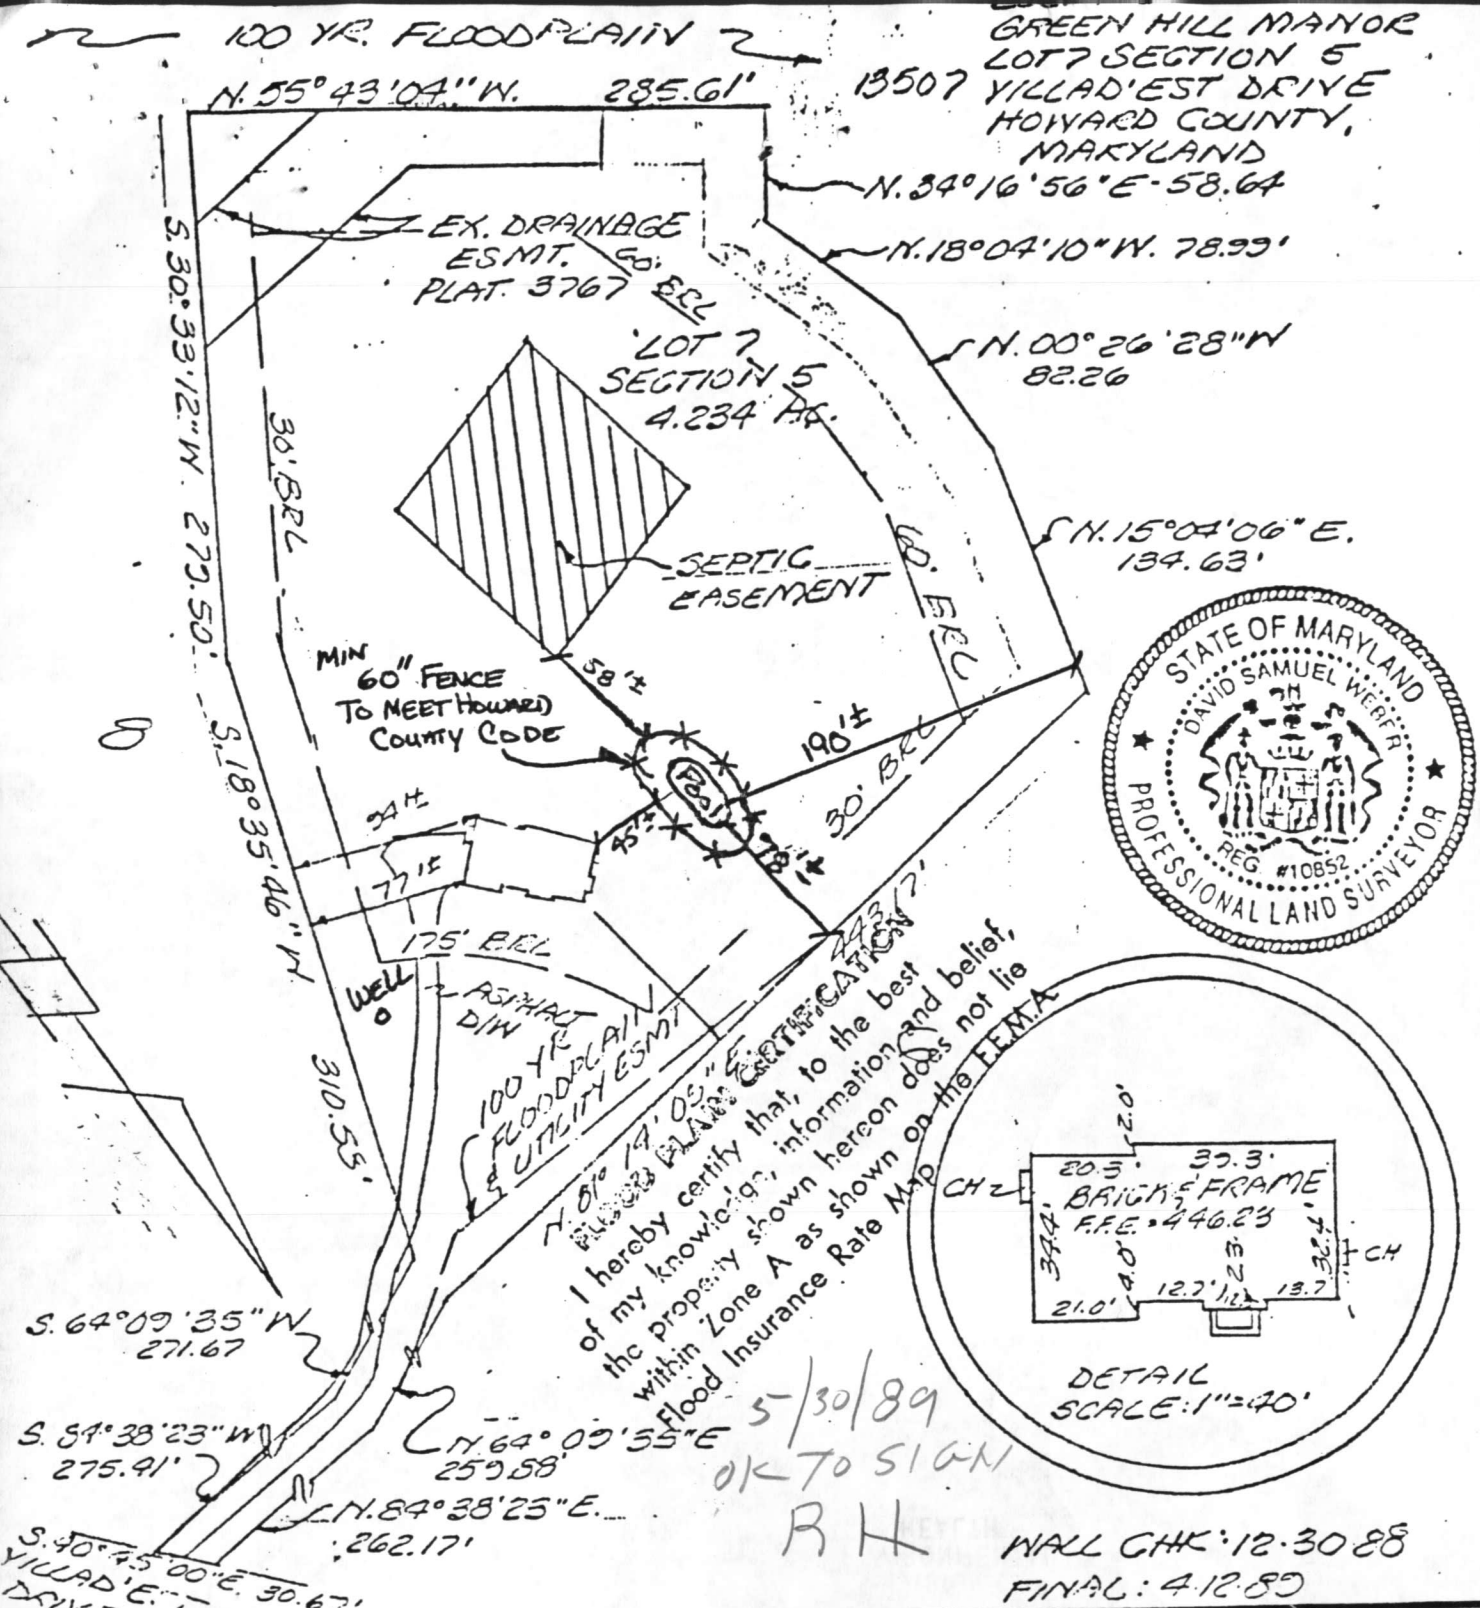 100 YR. FLOODPLAIN
GREEN HILL MANOR
LOT 7 SECTION 5
13507 VILLAD'EST DRIVE
HOWARD COUNTY,
MARYLAND
N. 55° 43' 04" W. 285.61'
N. 34° 16' 56" E - 58.64
N. 18° 04' 10" W. 78.99'
N. 00° 26' 28" W
82.26
N. 15° 04' 06" E.
134.63'
EX. DRAINAGE
ESMT.
PLAT. 3767
BRL
LOT 7
SECTION 5
4.234 AC.
S. 30° 33' 12" W. 279.50'
30' BRL
60' BRL
SEPTIC
EASEMENT
MIN
60" FENCE
TO MEET HOWARD
COUNTY CODE
58'±
POOL
190'±
30' BRL
45'±
78'±
94'±
77'±
S. 18° 35' 46" W
310.55'
8
175' BRL
WELL
ASPHALT
D/W
100 YR
FLOODPLAIN
& UTILITY ESMT
N 81° 14' 05" E
443.17'
STATE OF MARYLAND
DAVID SAMUEL WEBER
REG. #10852
PROFESSIONAL LAND SURVEYOR
FLOOD PLAIN CERTIFICATION
I hereby certify that, to the best
of my knowledge, information and belief,
the property shown hereon does not lie
within Zone A as shown on the F.E.M.A.
Flood Insurance Rate Map
2.0'
20.3' 39.3'
CH
BRICK & FRAME
F.F.E. = 446.23
34.4'
4.0'
23
32.4'
CH
21.0' 12.7' 13.7
DETAIL
SCALE: 1"=40'
S. 64° 09' 35" W
271.67
S. 84° 38' 23" W
275.41'
N 64° 09' 35" E
259.58'
N. 84° 38' 23" E.
262.17'
S. 40° 45' 00" E. 30.67'
5/30/89
OK TO SIGN
RH
WALL CHK: 12-30-88
FINAL: 4.12.89